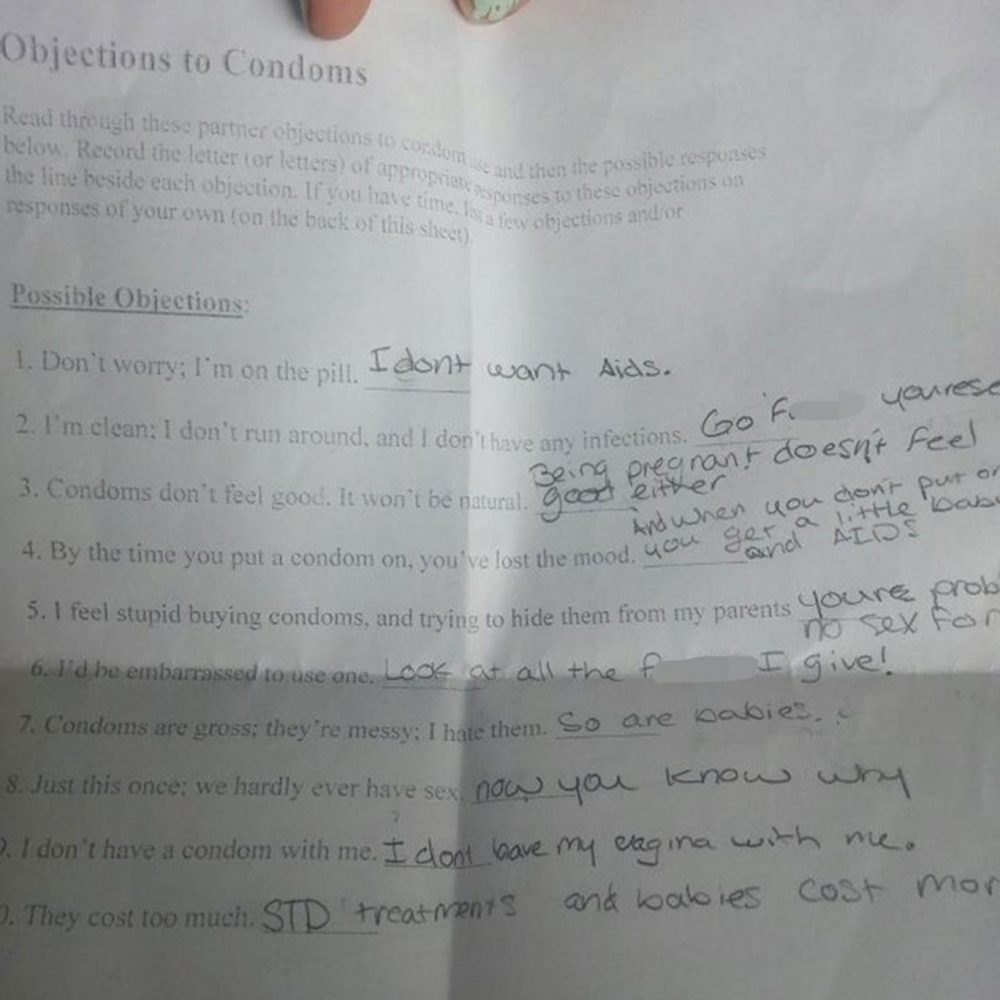 Objections to Condoms
Read through these partner objections to condom use and then the possible responses
below. Record the letter (or letters) of appropriate responses to these objections on
the line beside each objection. If you have time, list a few objections and/or
responses of your own (on the back of this sheet).
Possible Objections:
1. Don't worry; I'm on the pill. I dont want Aids.
2. I'm clean; I don't run around, and I don't have any infections. Go F
3. Condoms don't feel good. It won't be natural. Being pregnant doesn't feel
good either
4. By the time you put a condom on, you've lost the mood. And when you don't put on
you get a little
and AIDS
5. I feel stupid buying condoms, and trying to hide them from my parents youre
no sex for
6. I'd be embarrassed to use one. Look at all the f I give!
7. Condoms are gross; they're messy; I hate them. So are babies.
8. Just this once; we hardly ever have sex. now you know why
9. I don't have a condom with me. I dont have my vagina with me.
0. They cost too much. STD treatments and babies cost mor